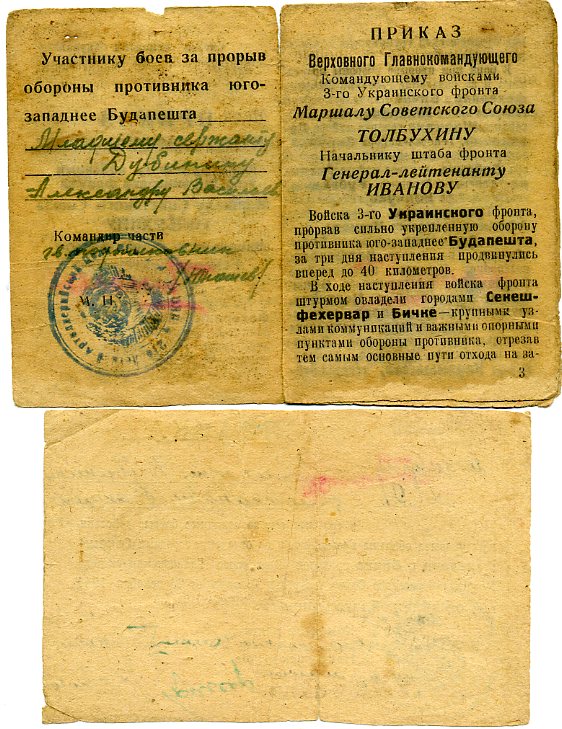 Участнику боев за прорыв
обороны противника юго-
западнее Будапешта
Младшему сержанту
Дубинину
Александру Василье
Командир части
гв. подполковник
М. П.
ПРИКАЗ
Верховного Главнокомандующего
Командующему войсками
3-го Украинского фронта
Маршалу Советского Союза
ТОЛБУХИНУ
Начальнику штаба фронта
Генерал-лейтенанту
ИВАНОВУ
Войска 3-го Украинского фронта,
прорвав сильно укрепленную оборону
противника юго-западнее Будапешта,
за три дня наступления продвинулись
вперед до 40 километров.
В ходе наступления войска фронта
штурмом овладели городами Секеш-
фехервар и Бичке—крупными уз-
лами коммуникаций и важными опорными
пунктами обороны противника, отрезав
тем самым основные пути отхода на за-
3